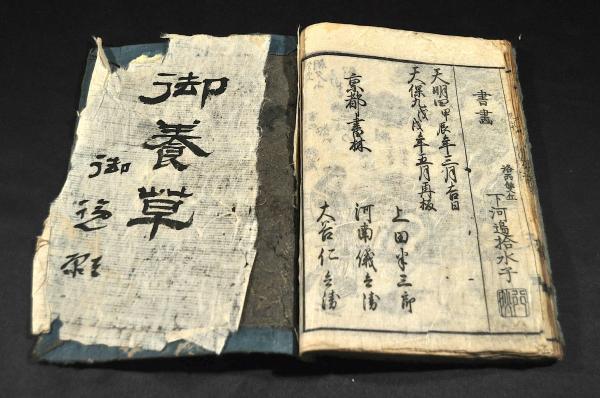 書畫
下河邊拾水子
天明四甲辰年三月吉日
天保九戊戌年五月再板
京都書林
上田半三郎
河南儀兵衛
大谷仁兵衛
御養草
御